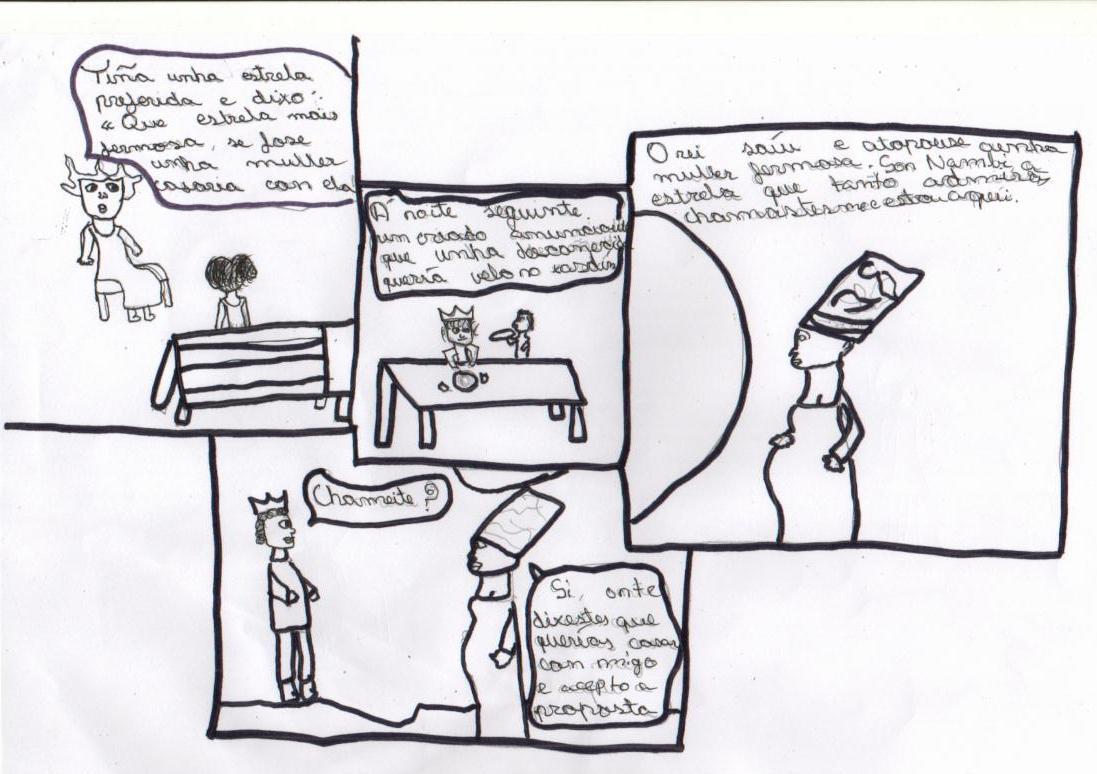 Tiña unha estrela
preferida e dixo:
"Que estrela mais
fermosa, se fose
unha muller
casaría con ela
Á noite seguinte
un criado anunciou
que unha
quería velo no xardín
O rei saíu e atopouse cunha
muller fermosa. Son Nambi a
estrela que tanto admiras,
chamástesme e estou aquí.
Chameite?
Si, onte
dixestes que
querías casar
con migo
e acepto a
proposta